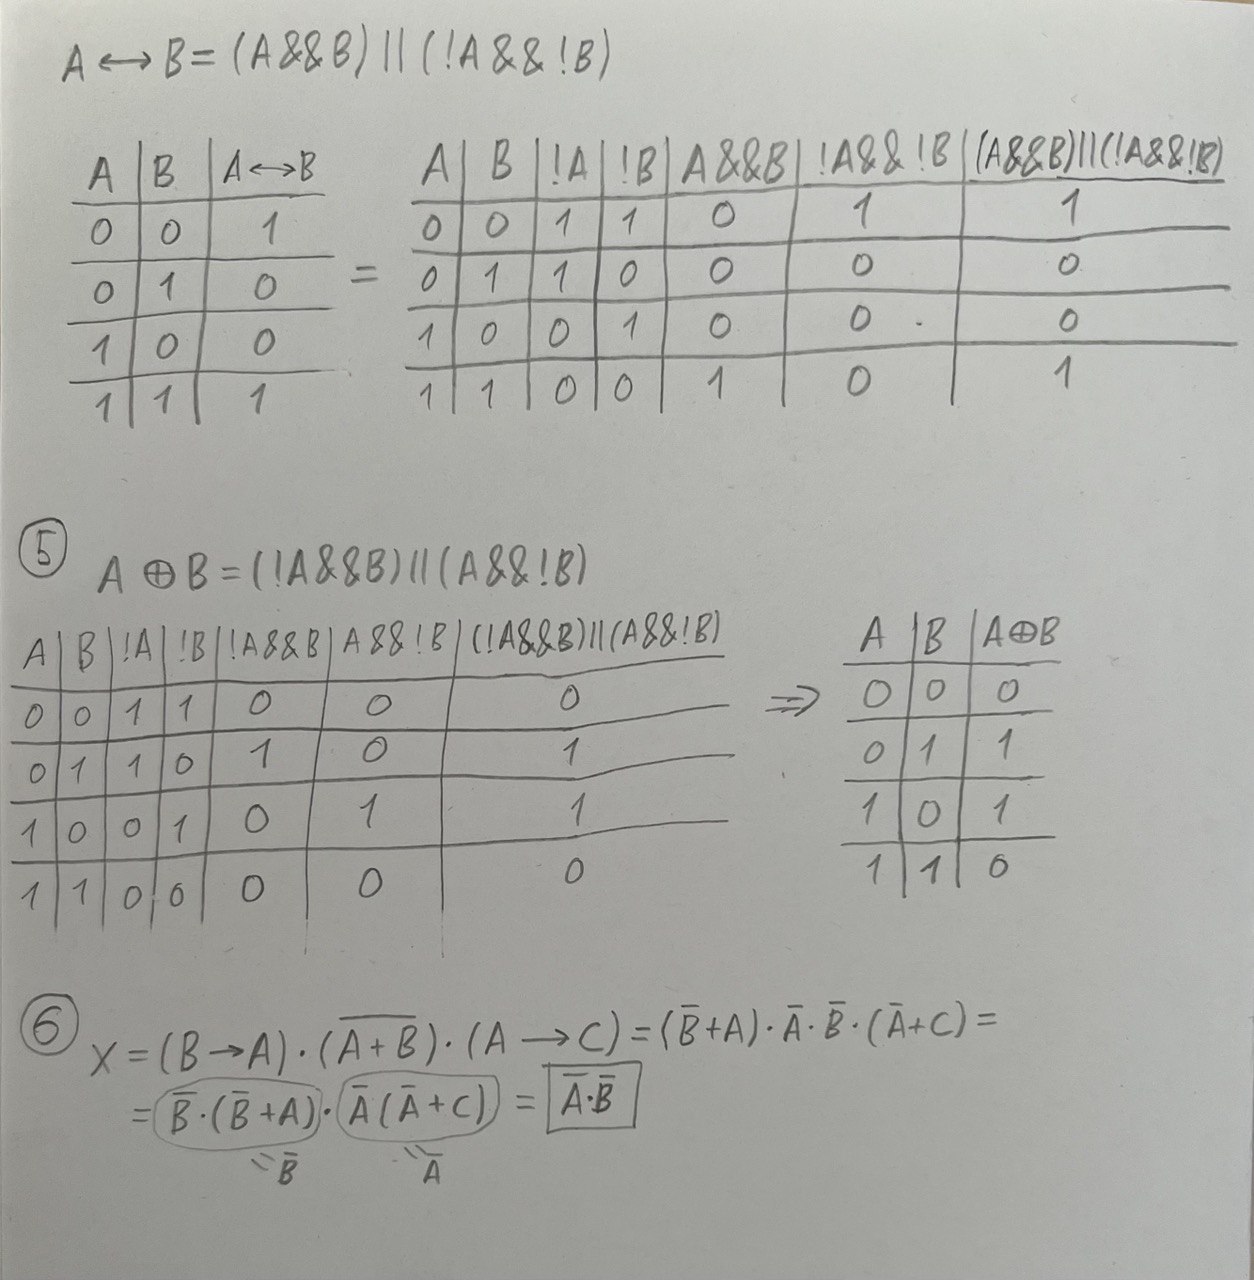 A ↔ B = (A&&B) || (!A && !B)
A | B | A↔B
0 | 0 | 1
0 | 1 | 0
1 | 0 | 0
1 | 1 | 1
=
A | B | !A | !B | A&&B | !A&&!B | (A&&B)||(!A&&!B)
0 | 0 | 1 | 1 | 0 | 1 | 1
0 | 1 | 1 | 0 | 0 | 0 | 0
1 | 0 | 0 | 1 | 0 | 0 | 0
1 | 1 | 0 | 0 | 1 | 0 | 1
⑤ A ⊕ B = (!A&&B)||(A&&!B)
A | B | !A | !B | !A&&B | A&&!B | (!A&&B)||(A&&!B)
0 | 0 | 1 | 1 | 0 | 0 | 0
0 | 1 | 1 | 0 | 1 | 0 | 1
1 | 0 | 0 | 1 | 0 | 1 | 1
1 | 1 | 0 | 0 | 0 | 0 | 0
⇒
A | B | A⊕B
0 | 0 | 0
0 | 1 | 1
1 | 0 | 1
1 | 1 | 0
⑥ X = (B→A)·(A̅+̅B̅)·(A→C) = (B̅+A)·A̅·B̅·(A̅+C) =
= B̅·(B̅+A)·A̅(A̅+C) = A̅·B̅
= B̅ = A̅